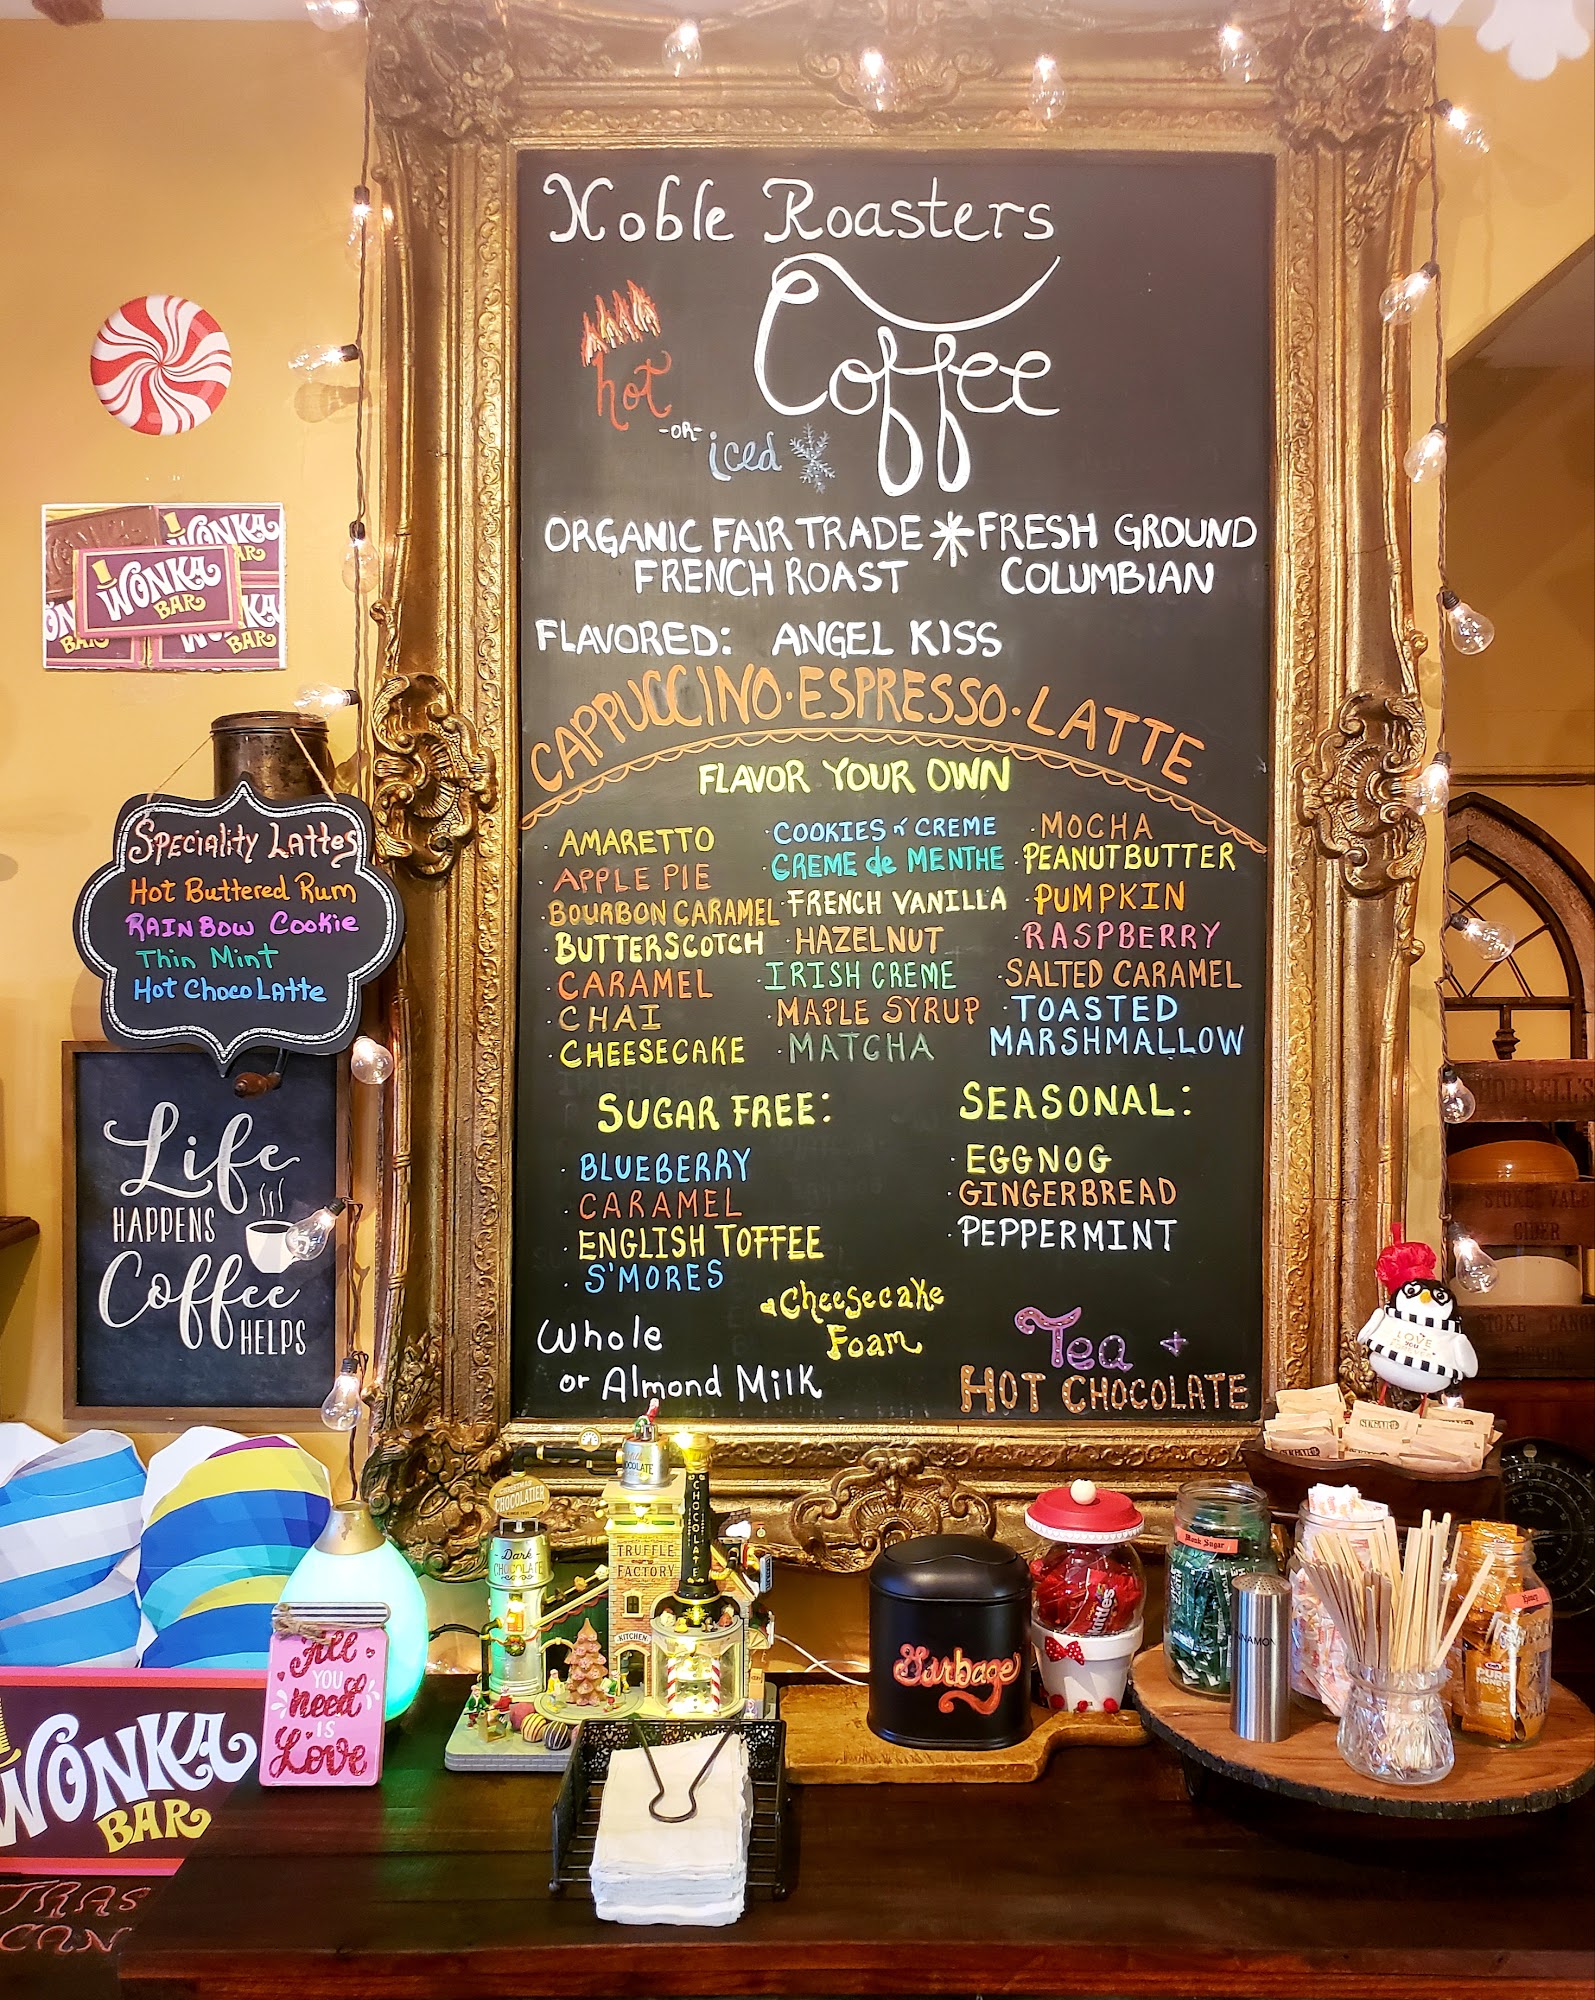 Noble Roasters
Coffee
hot
-OR-
iced
ORGANIC FAIR TRADE * FRESH GROUND
FRENCH ROAST COLUMBIAN
FLAVORED: ANGEL KISS
CAPPUCCINO · ESPRESSO · LATTE
FLAVOR YOUR OWN
· AMARETTO
· APPLE PIE
· BOURBON CARAMEL
· BUTTERSCOTCH
· CARAMEL
· CHAI
· CHEESECAKE
· COOKIES n' CREME
· CREME de MENTHE
· FRENCH VANILLA
· HAZELNUT
· IRISH CREME
· MAPLE SYRUP
· MATCHA
· MOCHA
· PEANUT BUTTER
· PUMPKIN
· RASPBERRY
· SALTED CARAMEL
· TOASTED
MARSHMALLOW
SUGAR FREE:
· BLUEBERRY
· CARAMEL
· ENGLISH TOFFEE
· S'MORES
SEASONAL:
· EGGNOG
· GINGERBREAD
· PEPPERMINT
Cheesecake
Foam
Whole
or Almond Milk
Tea +
HOT CHOCOLATE
WONKA
BAR
WONKA
BAR
WONKA
BAR
Speciality Lattes
Hot Buttered Rum
RAINBOW Cookie
Thin Mint
Hot ChocoLatte
Life
HAPPENS
Coffee
HELPS
WONKA
BAR
All
YOU
need
IS
Love
CHOCOLATIER
Dark
CHOCOLATE
CHOCOLATE
TRUFFLE
FACTORY
KITCHEN
CHOCOLATE
Garbage
Skittles
LOVE
SUGAR
Sugar
Honey
PURE
HONEY
CIDER